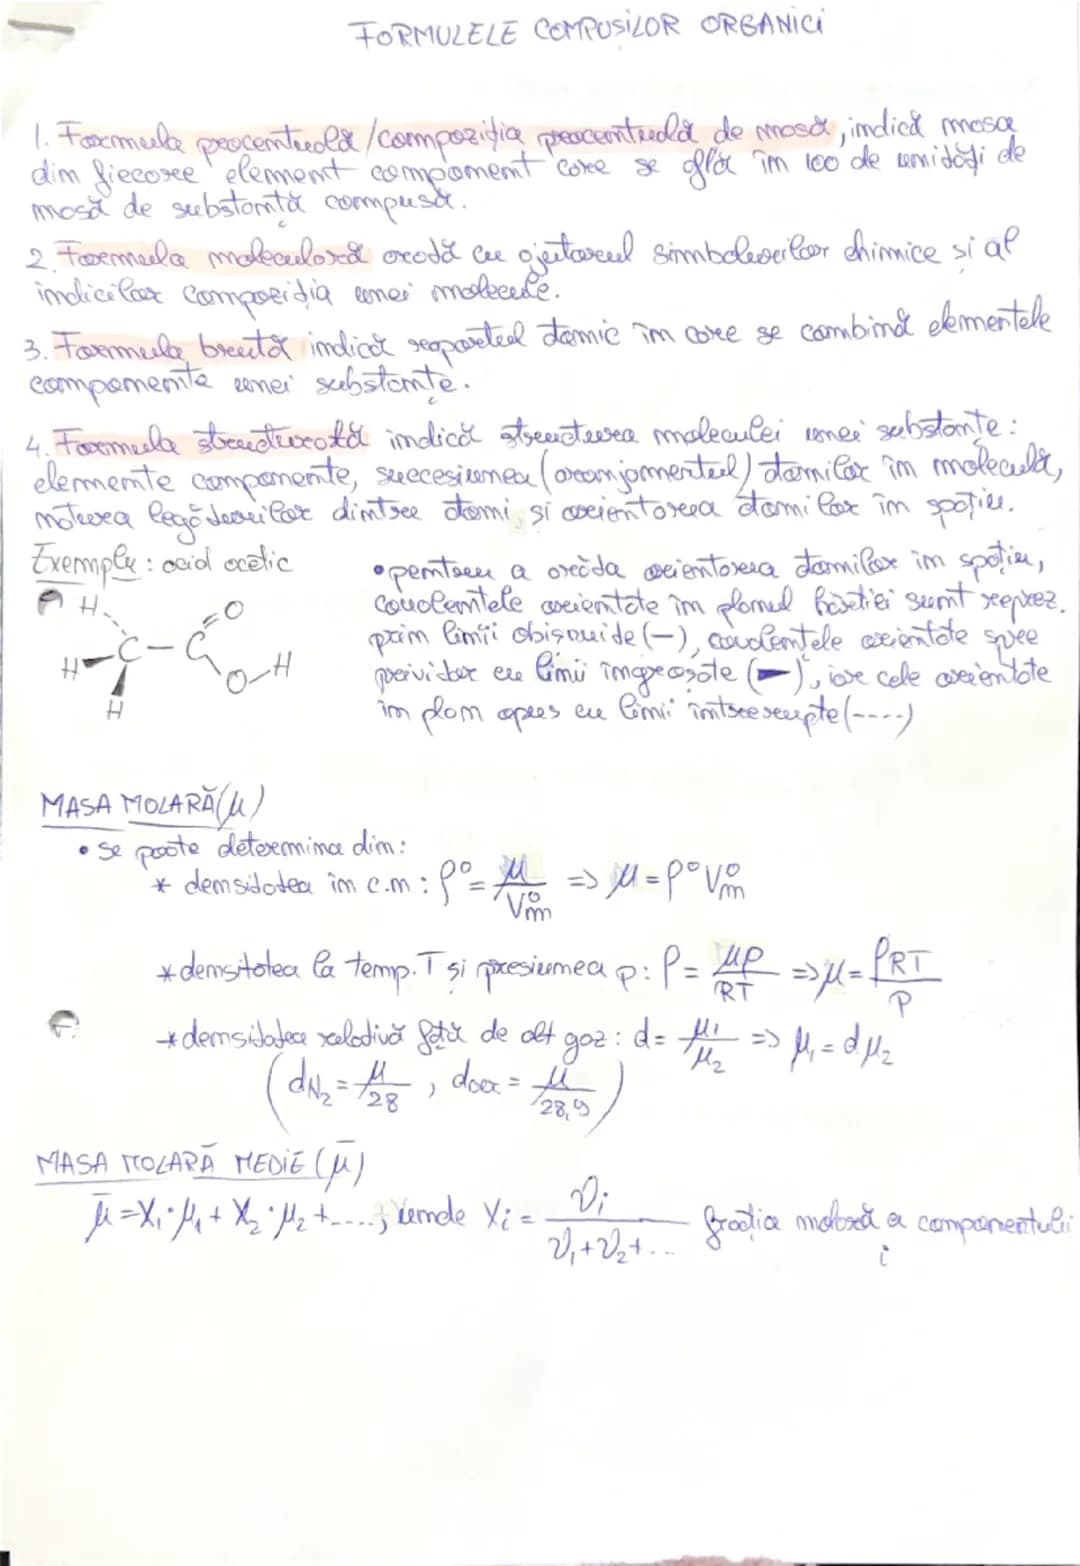 FORMULELE COMPUSILOR ORGANICI
1. Formula procentuală/compoziția procentuală de masă, indică masa
din fiecare element component care se află în 100 de unități de
masă de substanță compusă.
2. Formula moleculară arată cu ajutorul simbolurilor chimice si al
indicilor compoziția unei molecule.
3. Formula brută indică raportul atomic în care se combină elementele
componente unei substanțe.
4. Formula structurală indică structura moleculei unei substanțe:
elemente componente, succesiunea (aranjamentul) atomilor în moleculă,
natura legăturilor dintre atomi, si orientarea atomilor în spațiu.
Exemplu: acid acetic
• pentru a arăta orientarea atomilor în spațiu,
covalentele orientate în planul hârtiei sunt reprez.
prin linii obisnuide (—), covalențele orientate spre
privitor cu linii îngroșate (—), iar cele orientate
in plan opus cu linii întrerupte (----)
H O
C — C
H O-H
H
MASA MOLARĂ (μ)
• se poate determina din:
* densitatea în c.n: ρ° = μ/V°m => μ = ρ°V°m
* densitatea la temp. T și presiunea p: ρ = μp/RT => μ = ρRT/P
* densitatea relativă față de alt gaz: d = μ1/μ2 => μ1 = dμ2
(dN2 = μ/28, daer = μ/28,9)
MASA MOLARĂ MEDIE (μ̄)
μ̄ = X1·μ1 + X2·μ2 + ...., unde Xi = νi/ν1+ν2+... fracția molară a componentului
i